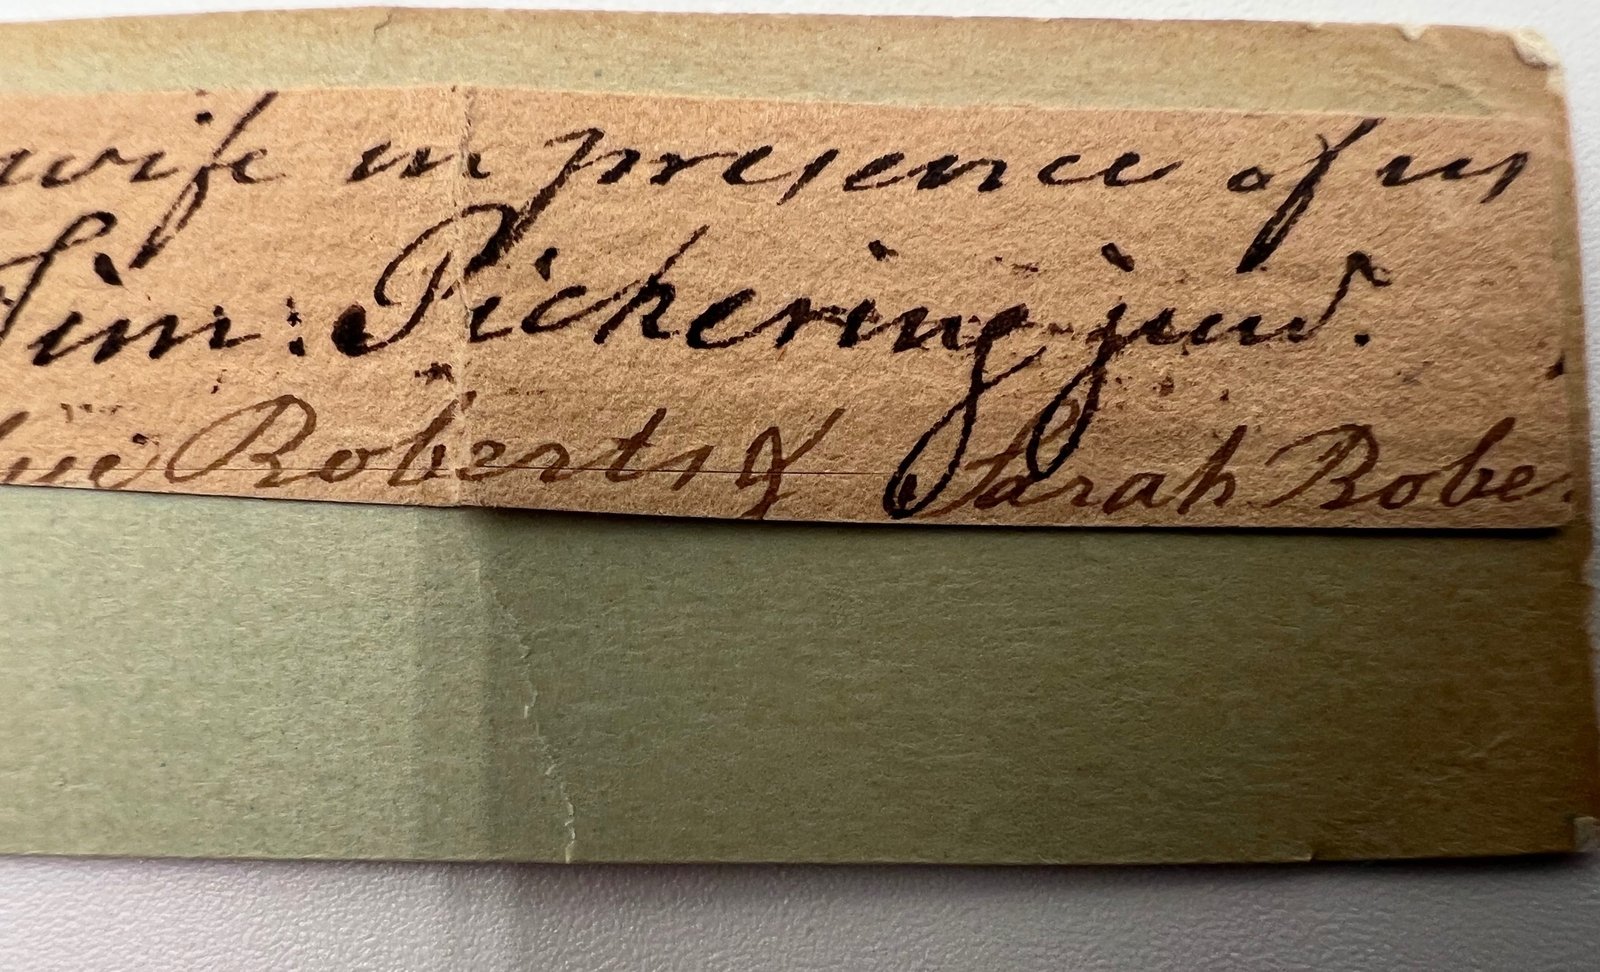 wife in presence of us
Tim: Pickering junr.
Roberts & Sarah Robe